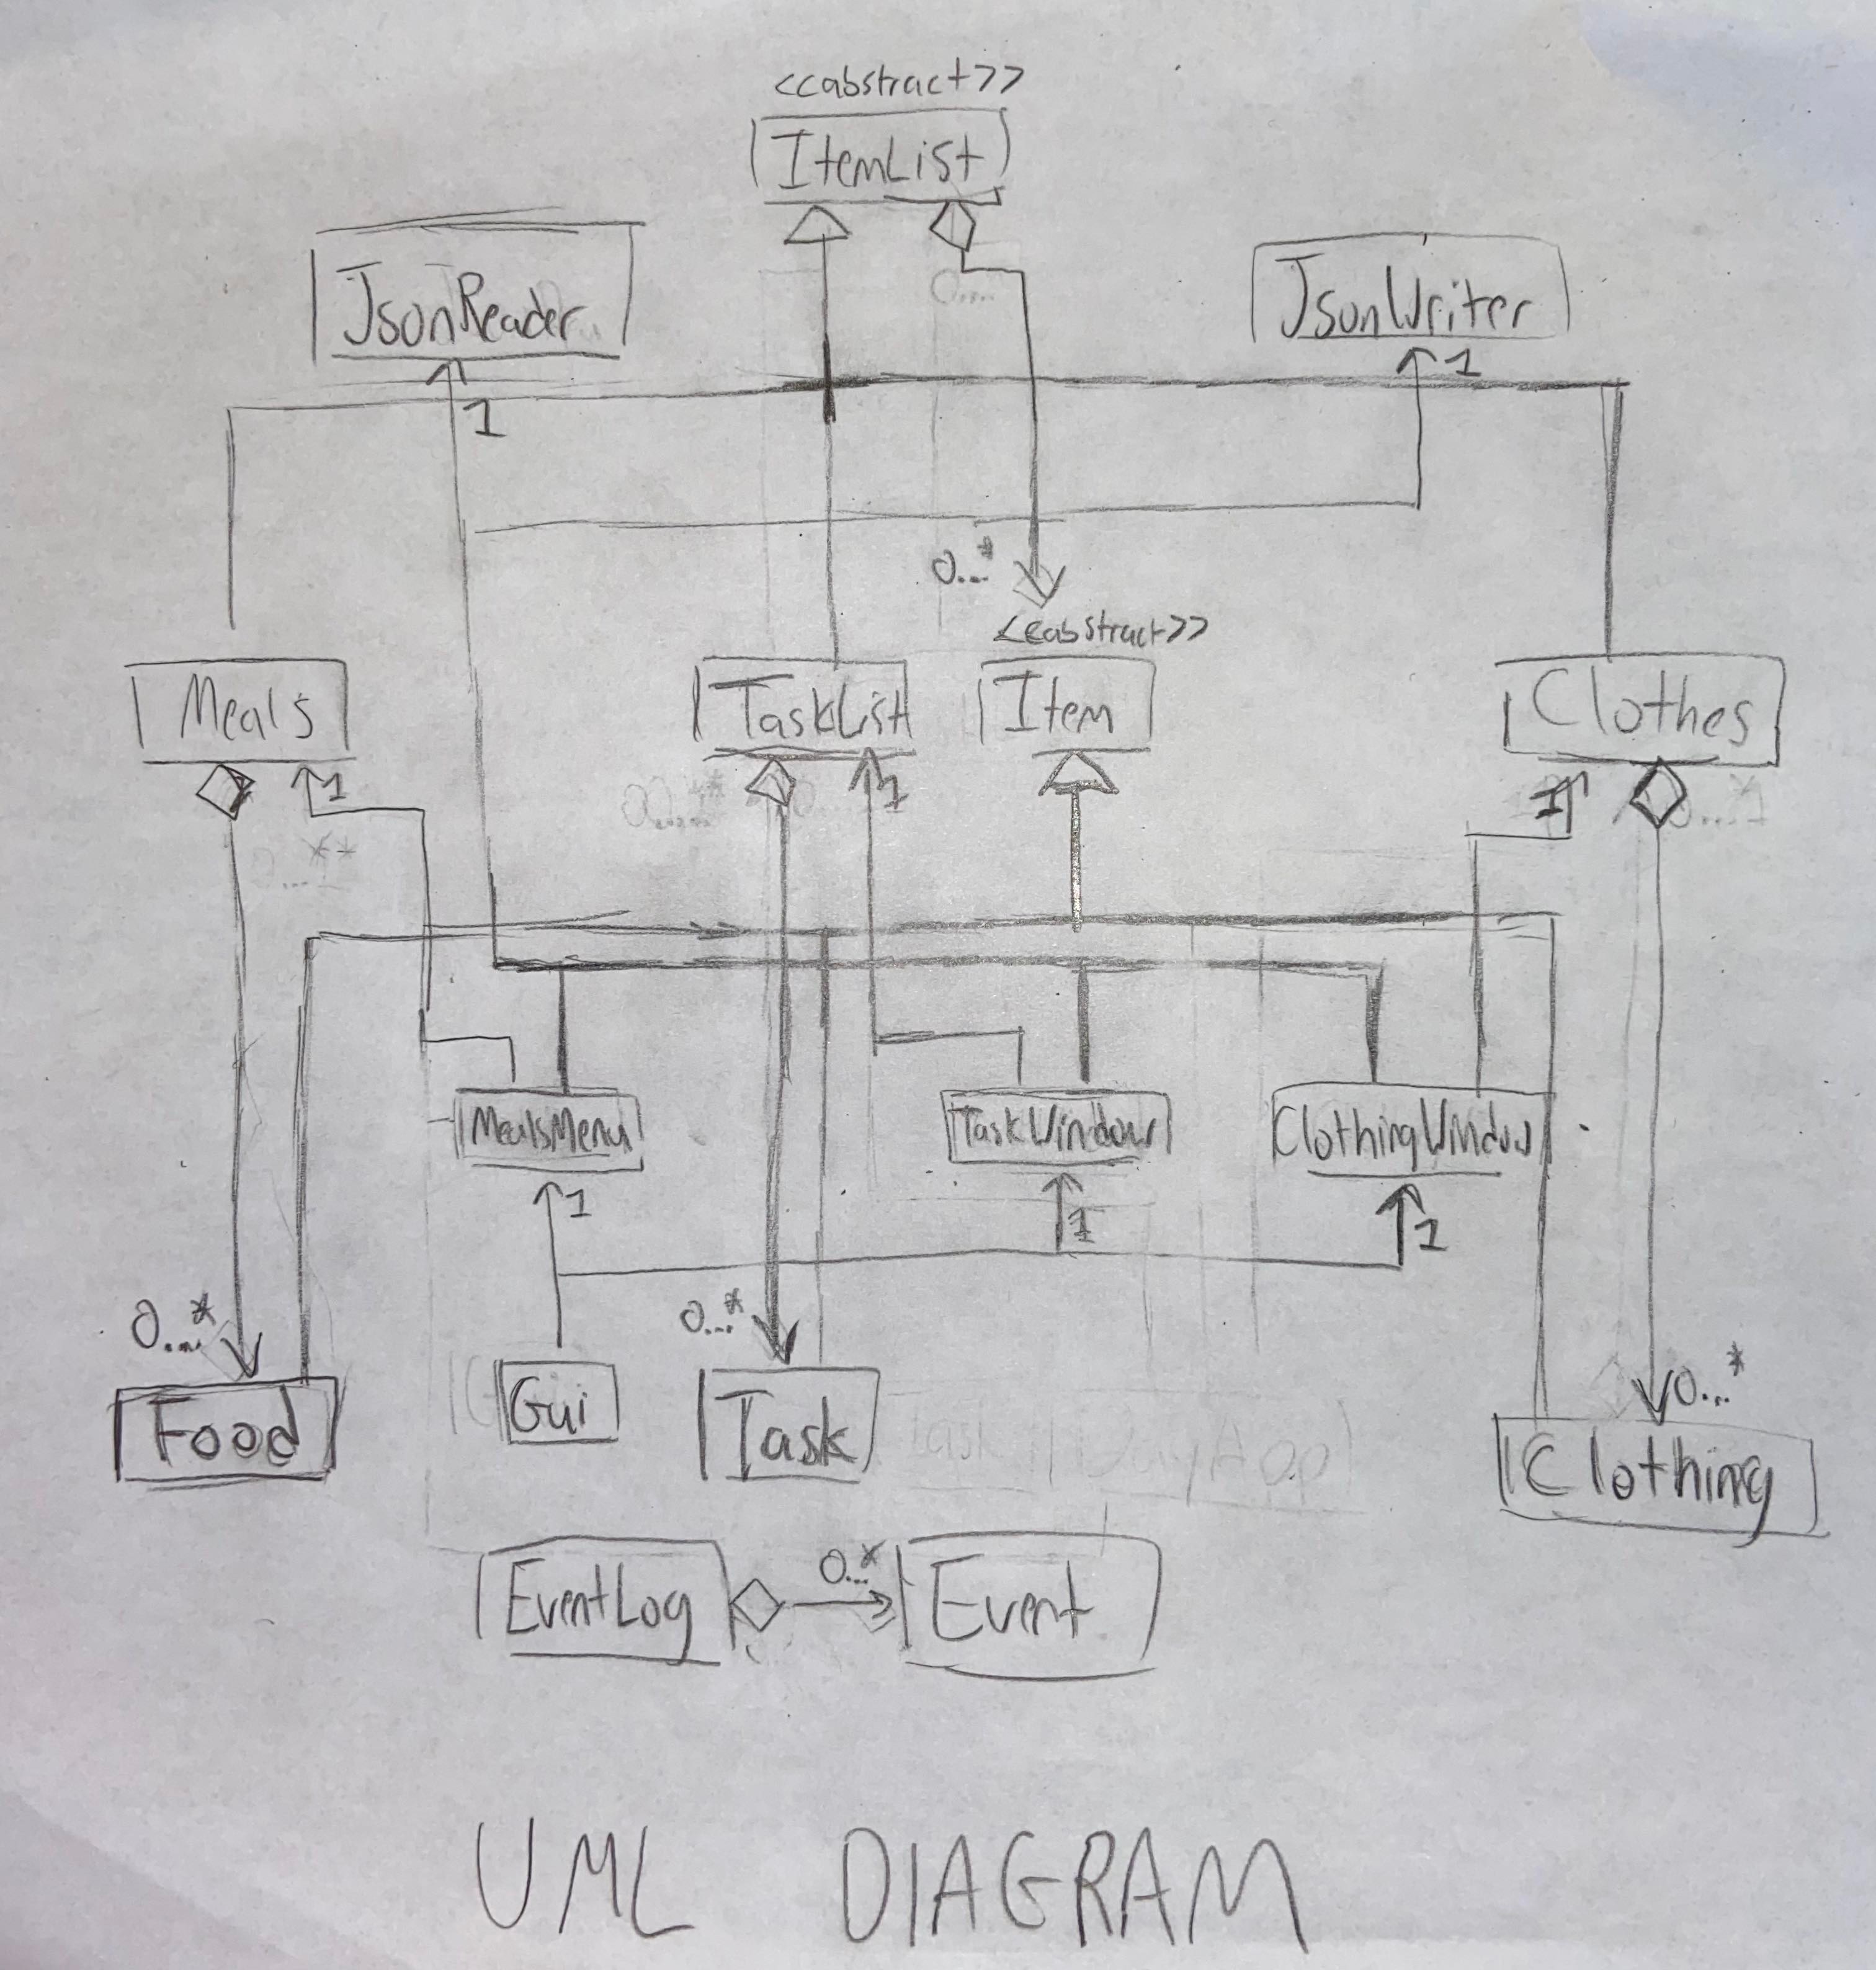 <<abstract>>
ItemList
JsonReader
JsonWriter
1
1
0...*
<<abstract>>
Meals
TaskList
Item
Clothes
1
1
1
MealsMenu
TaskWindow
ClothingWindow
1
1
1
0...*
0...*
0...*
Food
Gui
Task
Clothing
EventLog
0...*
Event
UML DIAGRAM